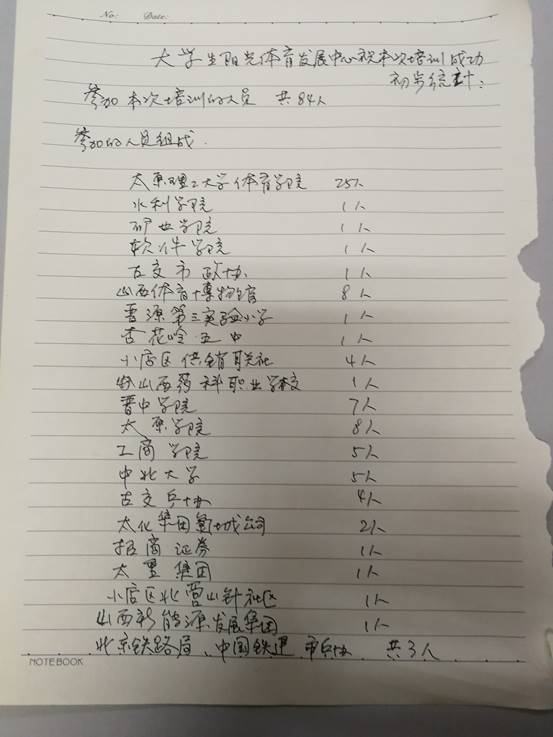 No: Date:
大学生阳光体育发展中心祝本次培训成功
初步统计:
参加本次培训的人员 共84人
参加的人员组成.
太原理工大学体育学院 25人
水利学院 1人
矿业学院 1人
软件学院 1人
古交市政协 1人
山西体育博物馆 8人
晋源第三实验小学 1人
杏花岭五中 1人
小店区供销联社 4人
山西药科职业学校 1人
晋中学院 7人
太原学院 8人
工商学院 5人
中北大学 5人
古交乒协 4人
太化集团 公司 2人
招商证券 1人
太重集团 1人
小店区北营山针社区 1人
山西新能源发展集团 1人
北京铁路局、中国铁建 市乒协 共3人
NOTEBOOK